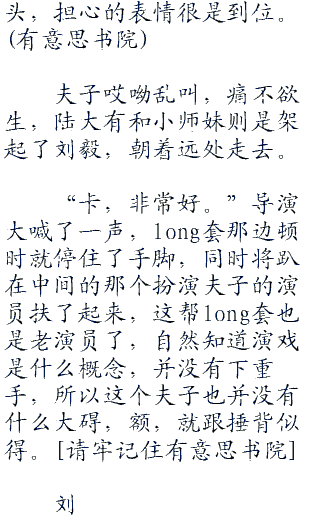 头，担心的表情很是到位。
(有意思书院)
夫子哎呦乱叫，痛不欲
生，陆大有和小师妹则是架
起了刘毅，朝着远处走去。
“卡，非常好。”导演
大喊了一声，long套那边顿
时就停住了手脚，同时将趴
在中间的那个扮演夫子的演
员扶了起来，这帮long套也
是老演员了，自然知道演戏
是什么概念，并没有下重
手，所以这个夫子也并没有
什么大碍，额，就跟捶背似
得。[请牢记住有意思书院]
刘